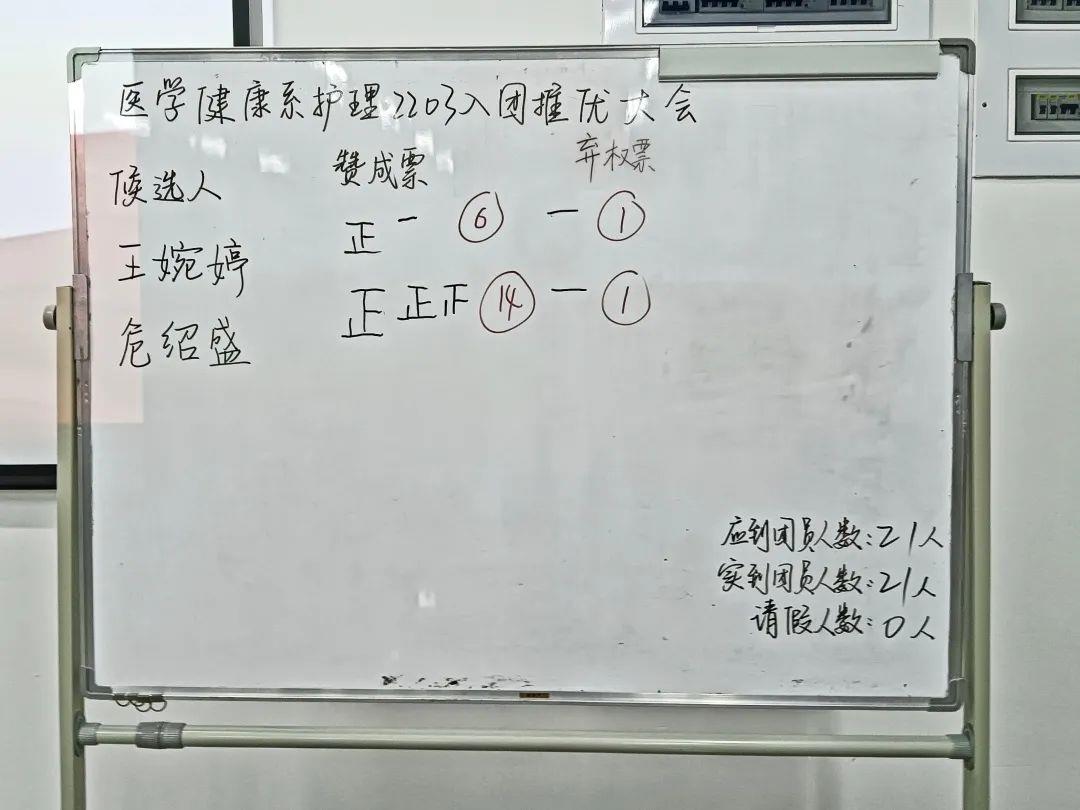 医学健康系护理2203入团推优大会
候选人 赞成票 弃权票
王婉婷 正一 6 一 1
危绍盛 正正正 14 一 1
应到团员人数:21人
实到团员人数:21人
请假人数:0人